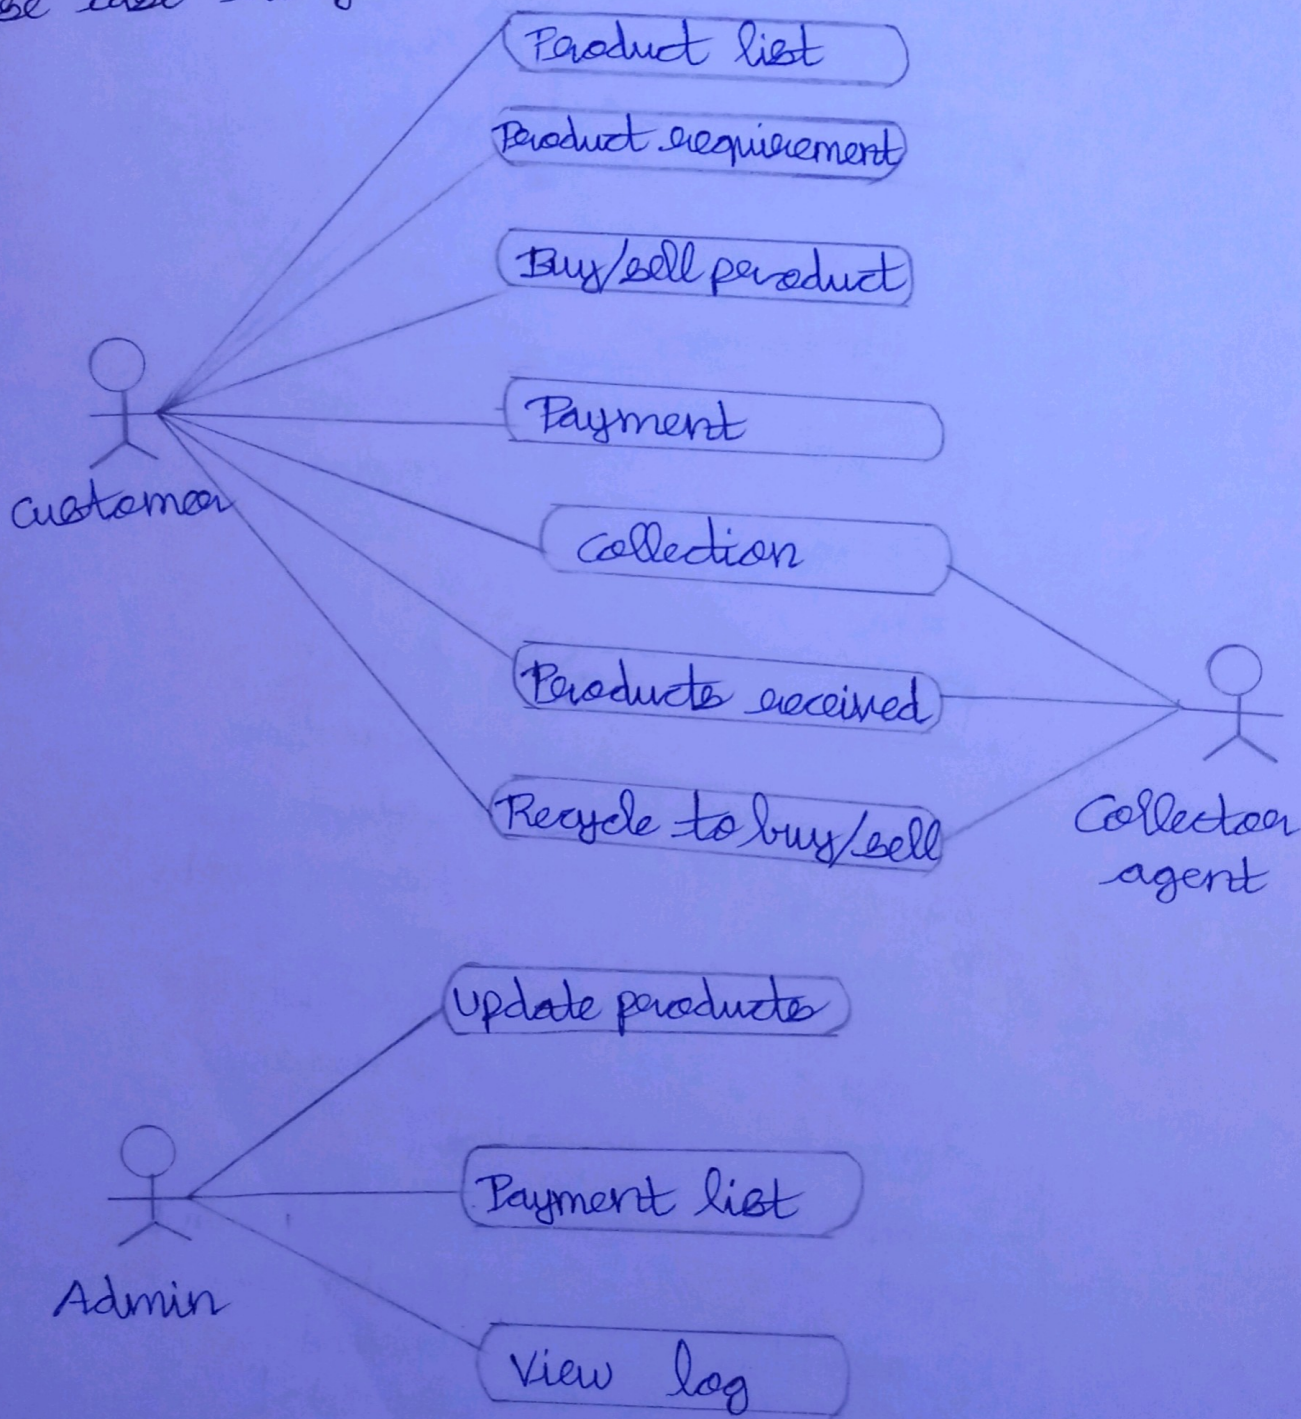 Product list
Product requirement
Buy/sell product
Payment
Customer
Collection
Products received
Recycle to buy/sell
Collector
agent
Update products
Payment list
Admin
View log